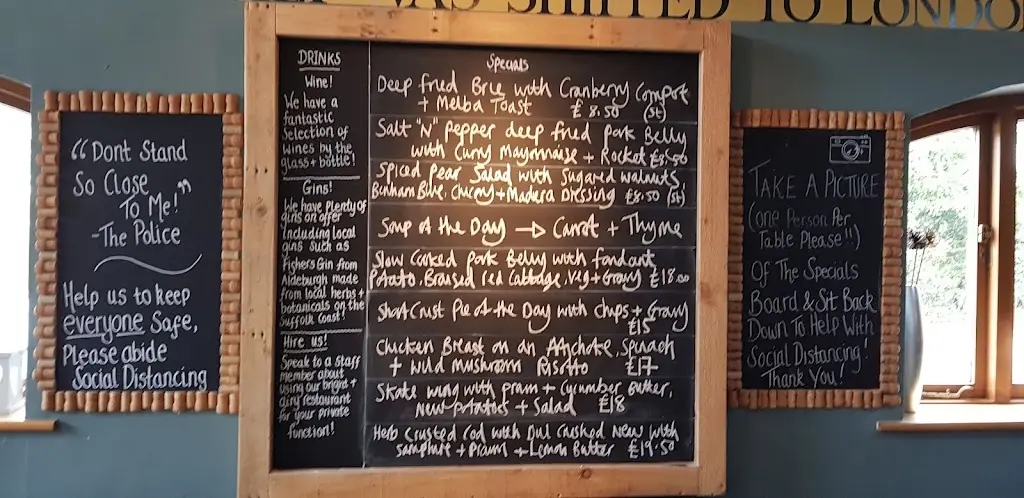 WAS SHIPPED TO LONDO
"Dont Stand
So Close
To Me!"
-The Police
Help us to keep
everyone Safe,
Please abide
Social Distancing
DRINKS
Wine!
We have a
fantastic
Selection of
Wines by the
glass + bottle!
Gins!
We have Plenty of
gins on offer
Including local
gins such as
Fishers Gin from
Aldeburgh made
from local herbs +
botanicals on the
Suffolk Coast!
Hire us!
Speak to a Staff
member about
using our bright +
airy restaurant
for your private
function!
Specials
Deep fried Brie with Cranberry Compote
+ Melba Toast £8.50 (St)
Salt "N" pepper deep fried Pork Belly
with Curry Mayonnaise + Rocket £8.50
Spiced Pear Salad with Sugared walnuts
Binham Blue, Chicory + Madera Dressing £8.50 (St)
Soup of the Day → Carrot + Thyme
Slow Cooked Pork Belly with fondant
Potato. Braised Red Cabbage, Veg + Gravy £18.00
ShortCrust Pie of the Day with chips + Gravy
£15
Chicken Breast on an Artichoke, Spinach
+ wild mushroom Risotto £17
Skate wing with prawn + Cucumber Butter,
New potatoes + Salad £18
Herb Crusted Cod with Dill Crushed New with
Samphire + Prawn + Lemon Butter £19.50
TAKE A PICTURE
(one Person Per
Table Please!!)
Of The Specials
Board & Sit Back
Down To Help With
Social Distancing!
Thank You!